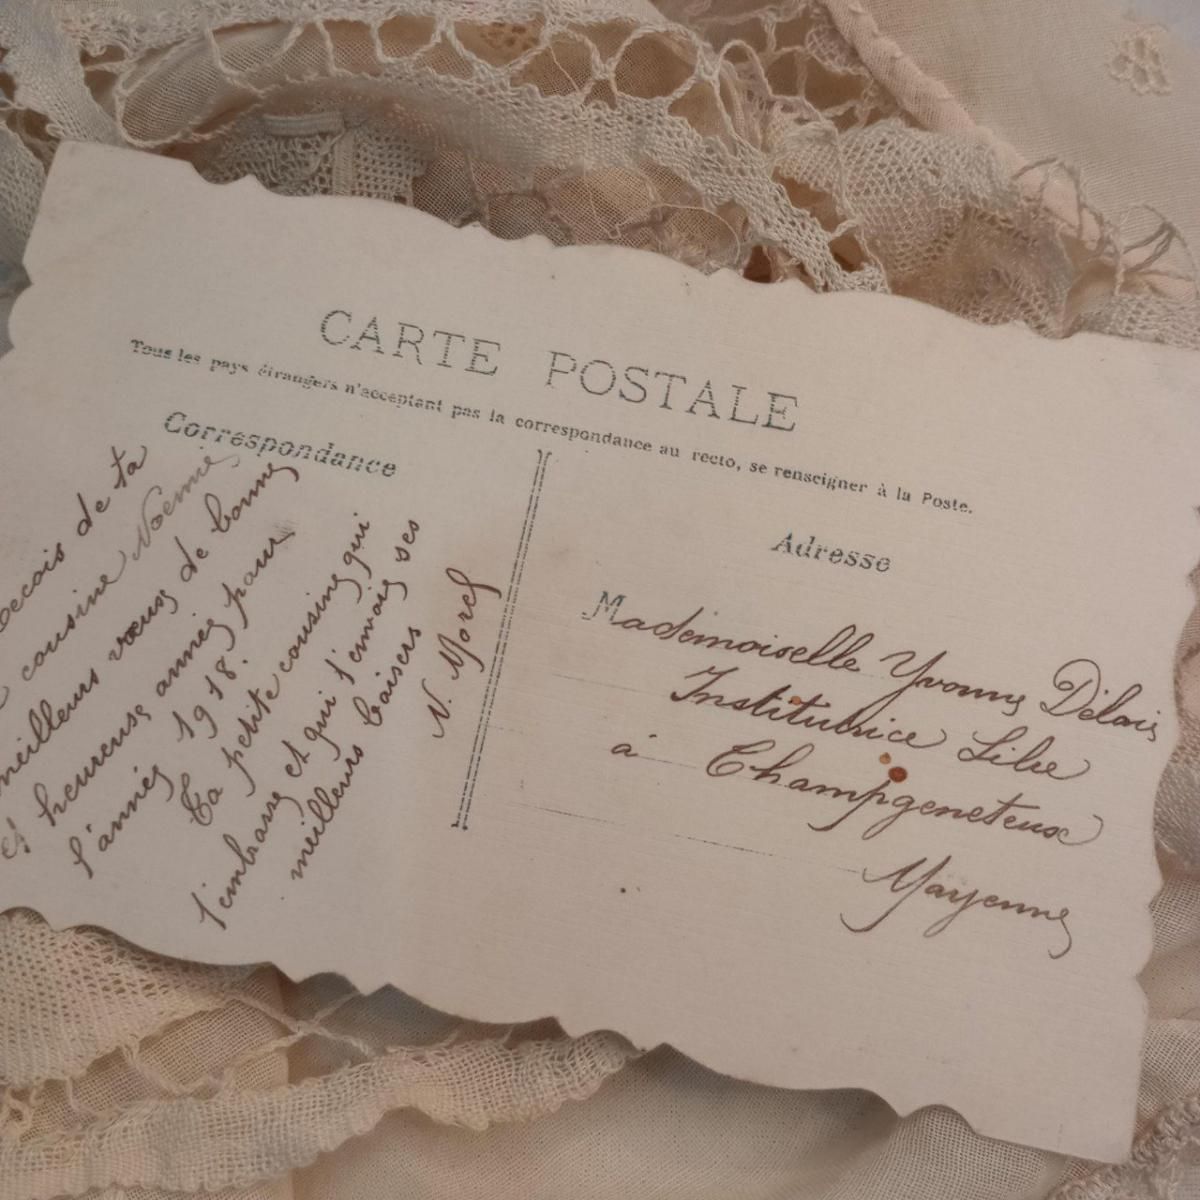 CARTE POSTALE
Tous les pays étrangers n'acceptant pas la correspondance au recto, se renseigner à la Poste.
Correspondance
Reçois de ta
cousine Noémie
meilleurs vœux de bonne
et heureuse année pour
l'année 1918.
Ta petite cousine qui
t'embrasse et qui t'envoie ses
meilleurs baisers
N. Morel
Adresse
Mademoiselle Yvonne Délais
Institutrice Libre
à Champgeneteux
Mayenne